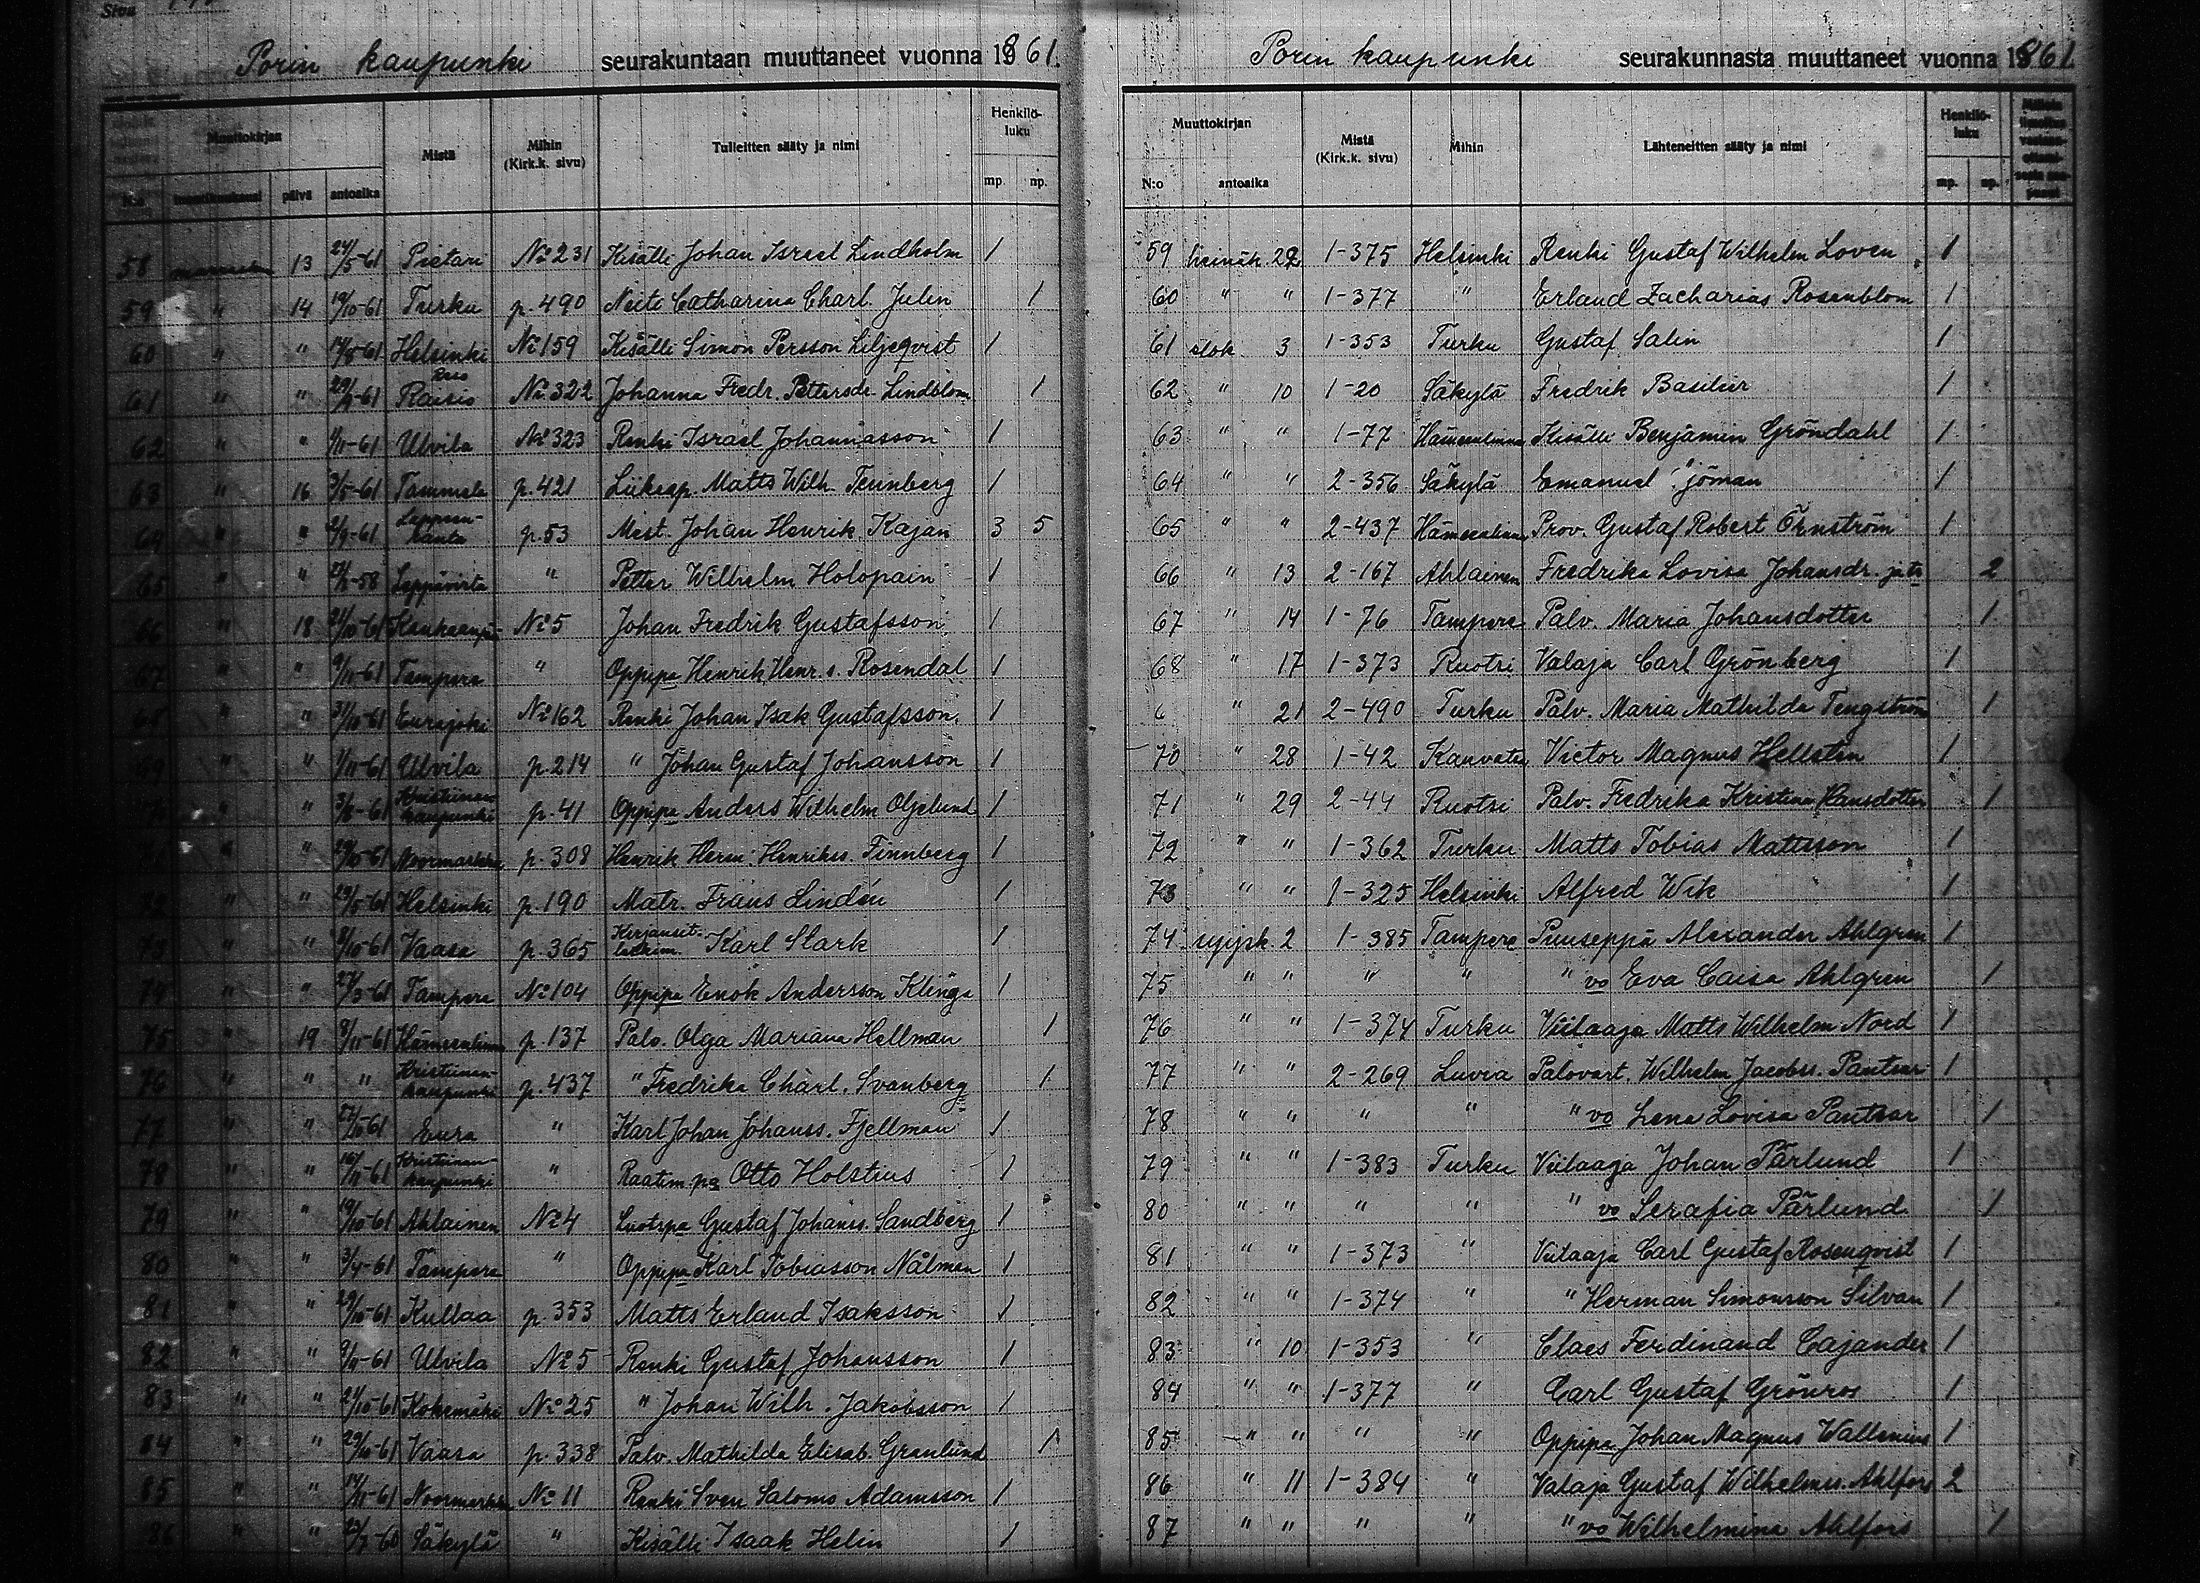 Sivu
Porin kaupunki seurakuntaan muuttaneet vuonna 1861.
Muuttokirjan Mistä Mihin (Kirk.k. sivu) Tulleitten sääty ja nimi Henkilö-luku
päivä antoaika mp. np.
58 13 24/5-61 Pietari No 231 Kisälli Johan Israel Lindholm 1
59 " 14 19/10-61 Turku p. 490 Neito Catharina Charl. Julin 1
60 " " 17/8-61 Helsinki No 159 Kisälli Simon Persson Liljeqvist 1
61 " " Raisio No 322 Johanna Fredr. Pettersdr. Lindblom 1
62 " " 4/11-61 Ulvila No 323 Renki Israel Johannasson 1
63 " 16 Tammela p. 421 Matts Wilh. Tennberg 1
64 " " 2/9-61 p. 53 Mest. Johan Henrik Kajan 3 5
65 " " Leppävirta " Petter Wilhelm Holopain 1
66 " 18 21/10-61 Kankaanpää No 5 Johan Fredrik Gustafsson 1
67 " " 9/11-61 Tampere " Oppipa Henrik Henr. s. Rosendal 1
68 " " 31/10-61 Eurajoki No 162 Renki Johan Isak Gustafsson. 1
69 " " 1/11-61 Ulvila p. 214 " Johan Gustaf Johansson 1
" 3/8-61 Kristiinan-kaupunki p. 41 Oppipa Anders Wilhelm Oljelund 1
" " 29/10-61 Noormarkku p. 308 Henrik Herm. Henrikss. Finnberg 1
72 " " Helsinki p. 190 Matr. Frans Lindén 1
73 " " 8/10-61 Vaasa p. 365 Karl Stark 1
74 " " Tampere No 104 Oppipa Enok Andersson Klinga 1
75 " 19 8/11-61 Hämeenlinna p. 137 Palv. Olga Mariana Hellman 1
76 " " " Kristiinan-kaupunki p. 437 " Fredrika Charl. Svanberg 1
77 " " Eura " Karl Johan Johanss. Fjellman 1
78 " " 16/11-61 Kristiinan-kaupunki " Otto Holstius 1
79 " " 19/10-61 Ahlainen No 4 Luotspa Gustaf Johanss. Sandberg 1
80 " " 3/4-61 Tampere " Oppipa Karl Tobiasson Nålman 1
81 " " 29/10-61 Kullaa p. 353 Matts Erland Isaksson 1
82 " " 9/11-61 Ulvila No 5 Renki Gustaf Johansson 1
83 " " 21/10-61 Kokemäki No 25 " Johan Wilh. Jakobsson 1
84 " " 29/10-61 Vaasa p. 338 Palv. Mathilda Elisab. Granlund 1
85 " " 17/11-61 Noormarkku No 11 Renki Sven Salomo Adamsson 1
86 " " Säkylä " Kisälli Isaak Helin 1
Porin kaupunki seurakunnasta muuttaneet vuonna 1861.
Muuttokirjan Mistä (Kirk.k. sivu) Mihin Lähteneitten sääty ja nimi Henkilö-luku
N:o antoaika mp. np.
59 heinäk. 22 1-375 Helsinki Renki Gustaf Wilhelm Loven 1
60 " " 1-377 " Erland Zacharias Rosenblom 1
61 elok 3 1-353 Turku Gustaf Salin 1
62 " 10 1-20 Säkylä Fredrik Basilier 1
63 " " 1-77 Hämeenlinna Kisälli Benjamin Gröndahl 1
64 " " 2-356 Säkylä Emanuel 1
65 " " 2-437 Hämeenlinna Prov. Gustaf Robert Örnström 1
66 " 13 2-167 Ahlainen Fredrika Lovisa Johansdr. ja ts 2
67 " 14 1-76 Tampere Palv. Maria Johansdotter 1
68 " 17 1-373 Ruotsi Valaja Carl Grönberg 1
" 21 2-490 Turku Palv. Maria Mathilda Tengström 1
70 " 28 1-42 Kauvatsa Victor Magnus Hellsten 1
71 " 29 2-44 Ruotsi Palv. Fredrika Kristina Hansdotter 1
72 " " 1-362 Turku Matts Tobias Mattsson 1
73 " " 1-325 Helsinki Alfred Wik 1
74 syysk. 2 1-385 Tampere Puuseppä Alexander Ahlgren 1
75 " " " " " vo Eva Caisa Ahlgren 1
76 " " 1-374 Turku Viilaaja Matts Wilhelm Nord 1
77 " " 2-269 Luvia Palovart. Wilhelm Jacobss. Pantsar 1
78 " " " " " vo Lena Lovisa Pantsar 1
79 " " 1-383 Turku Viilaaja Johan Pärlund 1
80 " " " " " vo Serafia Pärlund 1
81 " " 1-373 " Viilaaja Carl Gustaf Rosenqvist 1
82 " " 1-374 " " Herman Simonsson Silvan 1
83 " 10 1-353 " Claes Ferdinand Cajander 1
84 " " 1-377 " Carl Gustaf Grönros 1
85 " " " " Oppipa Johan Magnus Wallenius 1
86 " 11 1-384 " Valaja Gustaf Wilhelmss. Ahlfors 2
87 " " " " " vo Wilhelmina Ahlfors 1